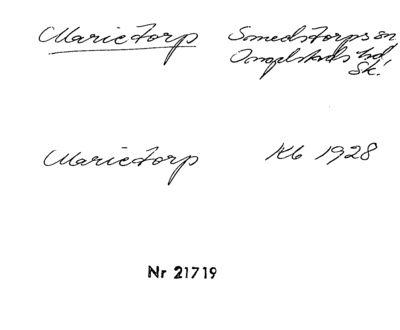 Marietorp Smedstorps sn
Ingelstads hd
Sk.
Marietorp Kb 1928
Nr 21719